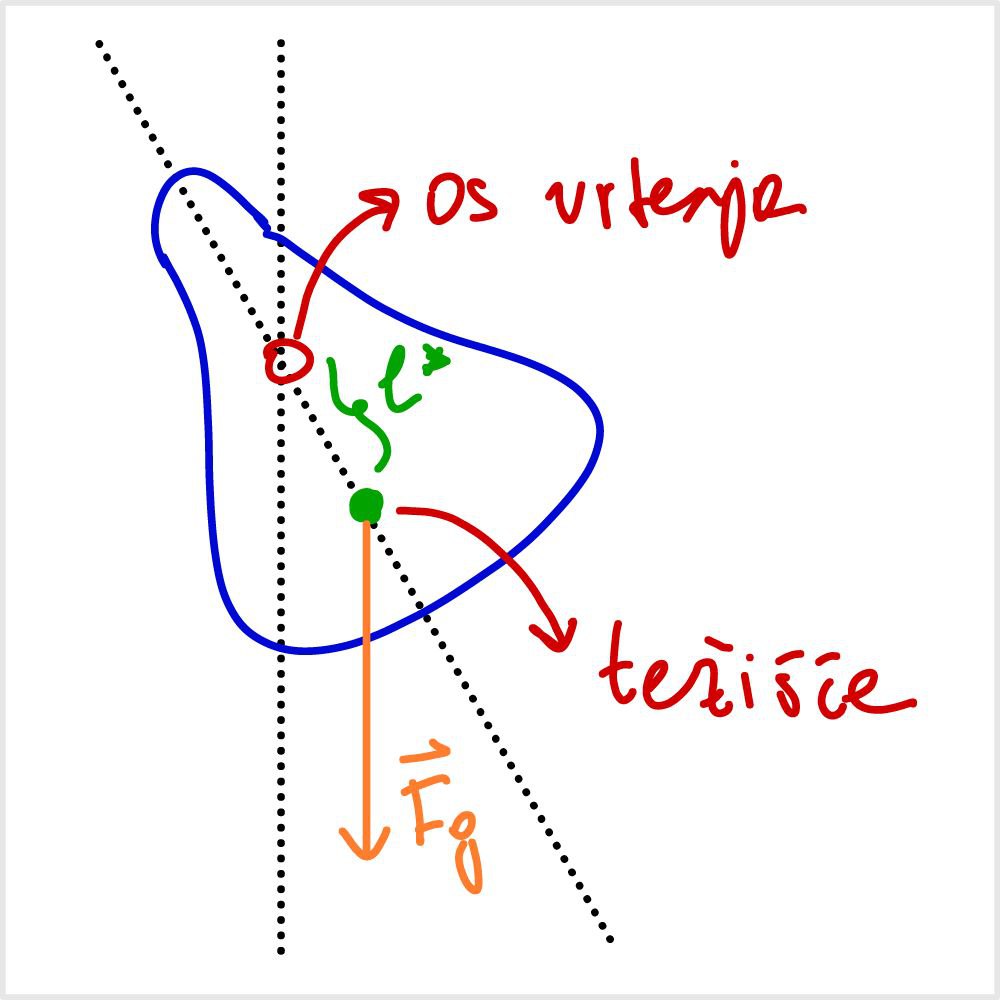 os vrtenja
l*
težišče
F⃗g